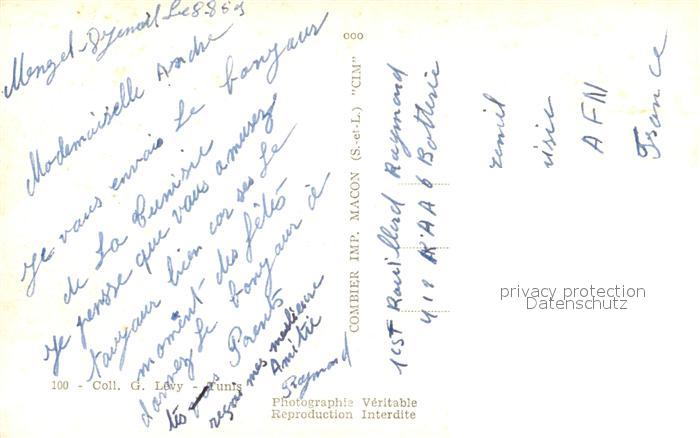 Menzel-Djemil Le 8.8.59
Mademoiselle Andre
Je vous envois Le bonjour
de La Tunisie
Je pensse que vous amusez
toujour bien car ses Le
moment des fêtes
donnez Le bonjour à
tes Parents
regois mes meilleure
Amitié
Raymond
100 - Coll. G. Lévy - Tunis
ooo
COMBIER IMP. MACON (S.-et-L.) "CIM"
Raymond
Batterie
AFN
France
privacy protection
Datenschutz
Photographie Véritable
Reproduction Interdite